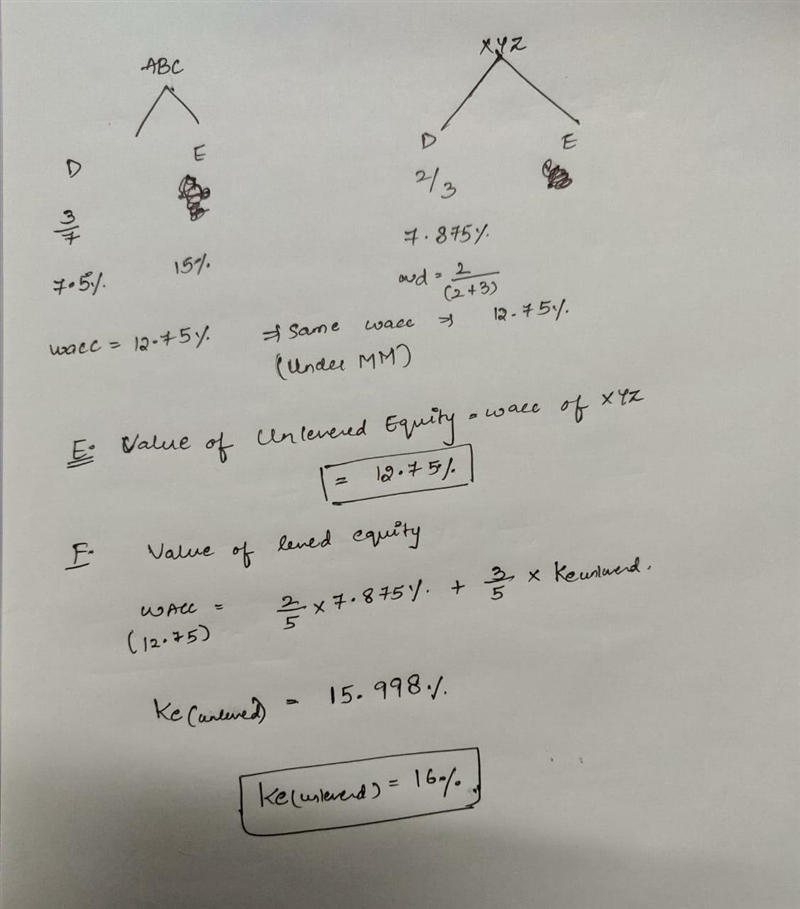 ABC
D E
3/7
7.5% 15%
XYZ
D E
2/3
7.875%
wd = 2/(2+3)
wacc = 12.75% ⇒ Same wacc ⇒ 12.75%
(Under MM)
E. Value of Unlevered Equity = wacc of XYZ
= 12.75%
F. Value of levered equity
WACC = 2/5 × 7.875% + 3/5 × Ke unleverd.
(12.75)
Ke (unlevered) = 15.998%
Ke (unleverd) = 16%